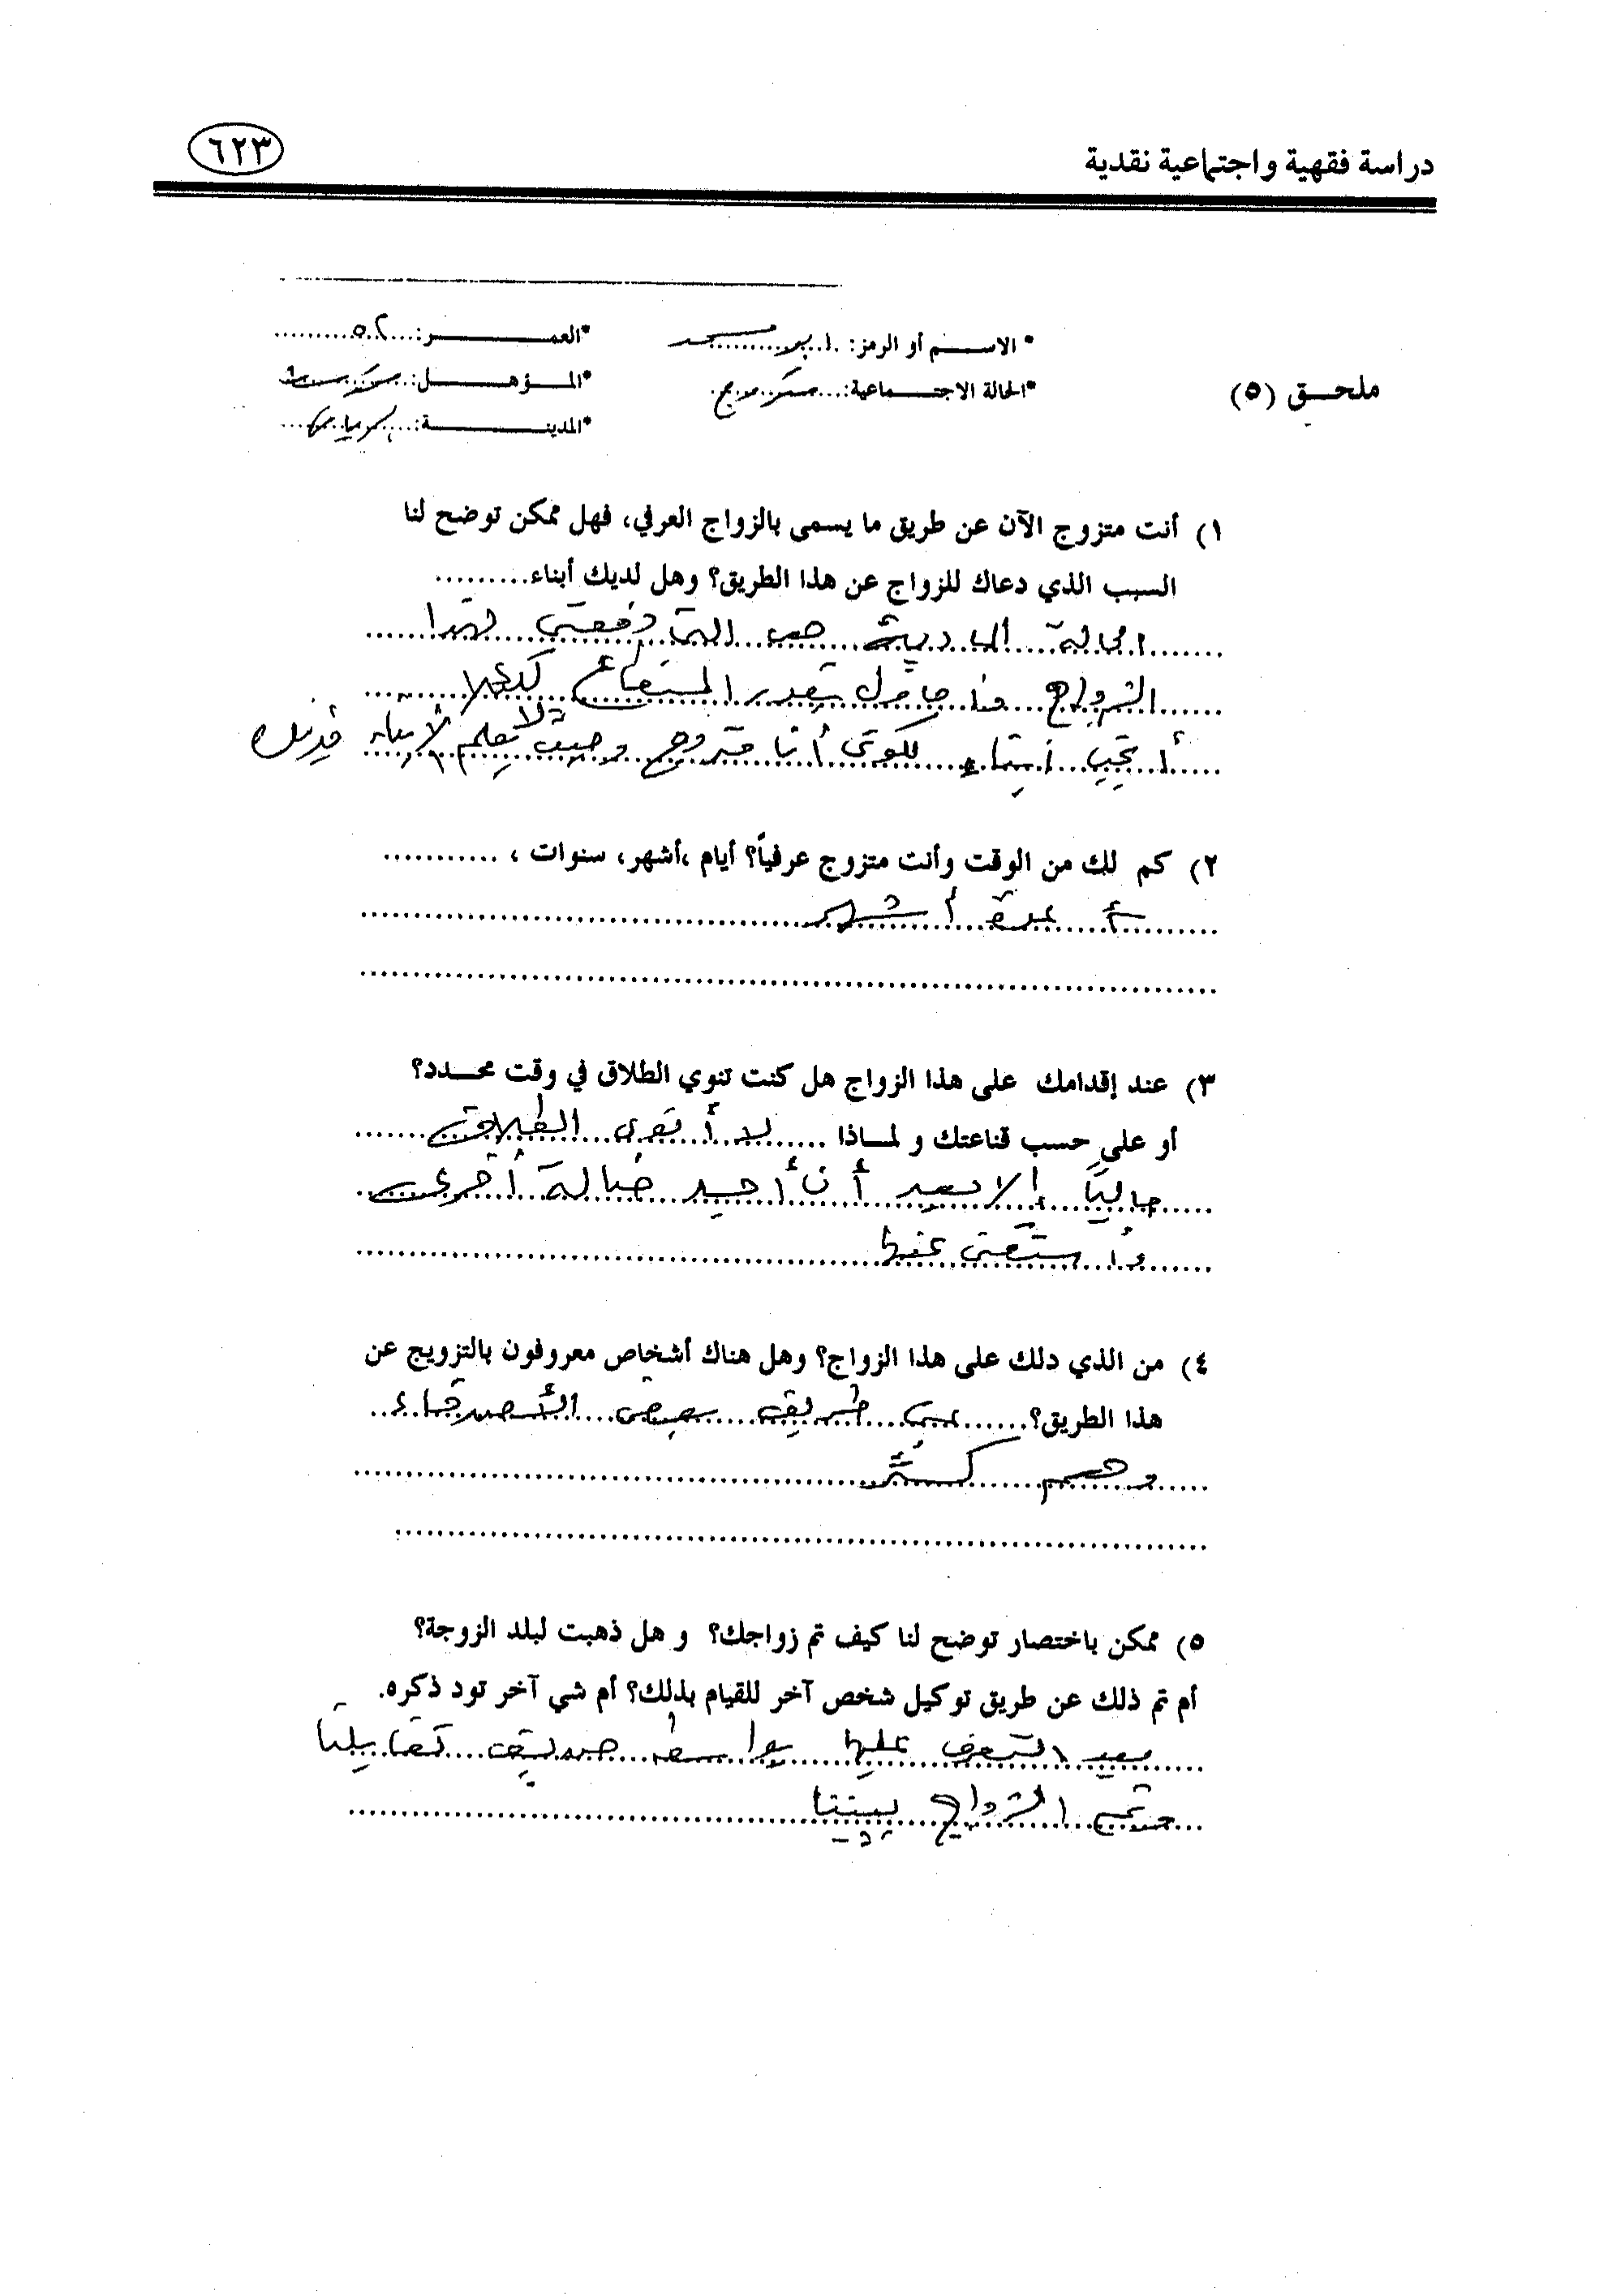 دراسة فقهية واجتماعية نقدية
٦٢٣
ملحق (٥)
*الاسم أو الرمز:
*العمر: ٥٢
*الحالة الاجتماعية: متزوج
*المؤهل:
*المدينة:
١) أنت متزوج الآن عن طريق ما يسمى بالزواج العرفي، فهل ممكن توضح لنا
السبب الذي دعاك للزواج عن هذا الطريق؟ وهل لديك أبناء.........
الحالة المادية هي التي دفعتني لهذا
الزواج
أنجب أبناء لكوني أنا متزوج
٢) كم لك من الوقت وأنت متزوج عرفياً؟ أيام ،أشهر، سنوات ، ...........
عدة أشهر
٣) عند إقدامك على هذا الزواج هل كنت تنوي الطلاق في وقت محدد؟
أو على حسب قناعتك و لماذا ..... لم أنوي الطلاق
حالياً إلا بعد أن أجد حالة أخرى
وأستغني عنها
٤) من الذي دلك على هذا الزواج؟ وهل هناك أشخاص معروفون بالتزويج عن
هذا الطريق؟...... عن طريق بعض الأصدقاء
وهم كثر
٥) ممكن باختصار توضح لنا كيف تم زواجك؟ و هل ذهبت لبلد الزوجة؟
أم تم ذلك عن طريق توكيل شخص آخر للقيام بذلك؟ أم شي آخر تود ذكره.
بعد التعرف عليها بواسطة صديق تقابلنا
وتم الزواج بيننا